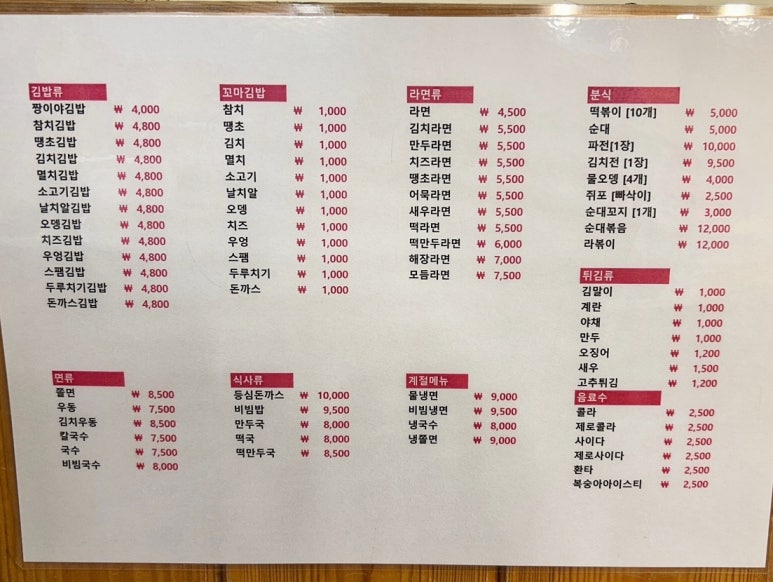 김밥류
짱이야김밥 ₩ 4,000
참치김밥 ₩ 4,800
땡초김밥 ₩ 4,800
김치김밥 ₩ 4,800
멸치김밥 ₩ 4,800
소고기김밥 ₩ 4,800
날치알김밥 ₩ 4,800
오뎅김밥 ₩ 4,800
치즈김밥 ₩ 4,800
우엉김밥 ₩ 4,800
스팸김밥 ₩ 4,800
두루치기김밥 ₩ 4,800
돈까스김밥 ₩ 4,800
꼬마김밥
참치 ₩ 1,000
땡초 ₩ 1,000
김치 ₩ 1,000
멸치 ₩ 1,000
소고기 ₩ 1,000
날치알 ₩ 1,000
오뎅 ₩ 1,000
치즈 ₩ 1,000
우엉 ₩ 1,000
스팸 ₩ 1,000
두루치기 ₩ 1,000
돈까스 ₩ 1,000
라면류
라면 ₩ 4,500
김치라면 ₩ 5,500
만두라면 ₩ 5,500
치즈라면 ₩ 5,500
땡초라면 ₩ 5,500
어묵라면 ₩ 5,500
새우라면 ₩ 5,500
떡라면 ₩ 5,500
떡만두라면 ₩ 6,000
해장라면 ₩ 7,000
모듬라면 ₩ 7,500
분식
떡볶이 [10개] ₩ 5,000
순대 ₩ 5,000
파전[1장] ₩ 10,000
김치전 [1장] ₩ 9,500
물오뎅 [4개] ₩ 4,000
쥐포 [빠삭이] ₩ 2,500
순대꼬지 [1개] ₩ 3,000
순대볶음 ₩ 12,000
라볶이 ₩ 12,000
튀김류
김말이 ₩ 1,000
계란 ₩ 1,000
야채 ₩ 1,000
만두 ₩ 1,000
오징어 ₩ 1,200
새우 ₩ 1,500
고추튀김 ₩ 1,200
면류
쫄면 ₩ 8,500
우동 ₩ 7,500
김치우동 ₩ 8,500
칼국수 ₩ 7,500
국수 ₩ 7,500
비빔국수 ₩ 8,000
식사류
등심돈까스 ₩ 10,000
비빔밥 ₩ 9,500
만두국 ₩ 8,000
떡국 ₩ 8,000
떡만두국 ₩ 8,500
계절메뉴
물냉면 ₩ 9,000
비빔냉면 ₩ 9,500
냉국수 ₩ 8,000
냉쫄면 ₩ 9,000
음료수
콜라 ₩ 2,500
제로콜라 ₩ 2,500
사이다 ₩ 2,500
제로사이다 ₩ 2,500
환타 ₩ 2,500
복숭아아이스티 ₩ 2,500